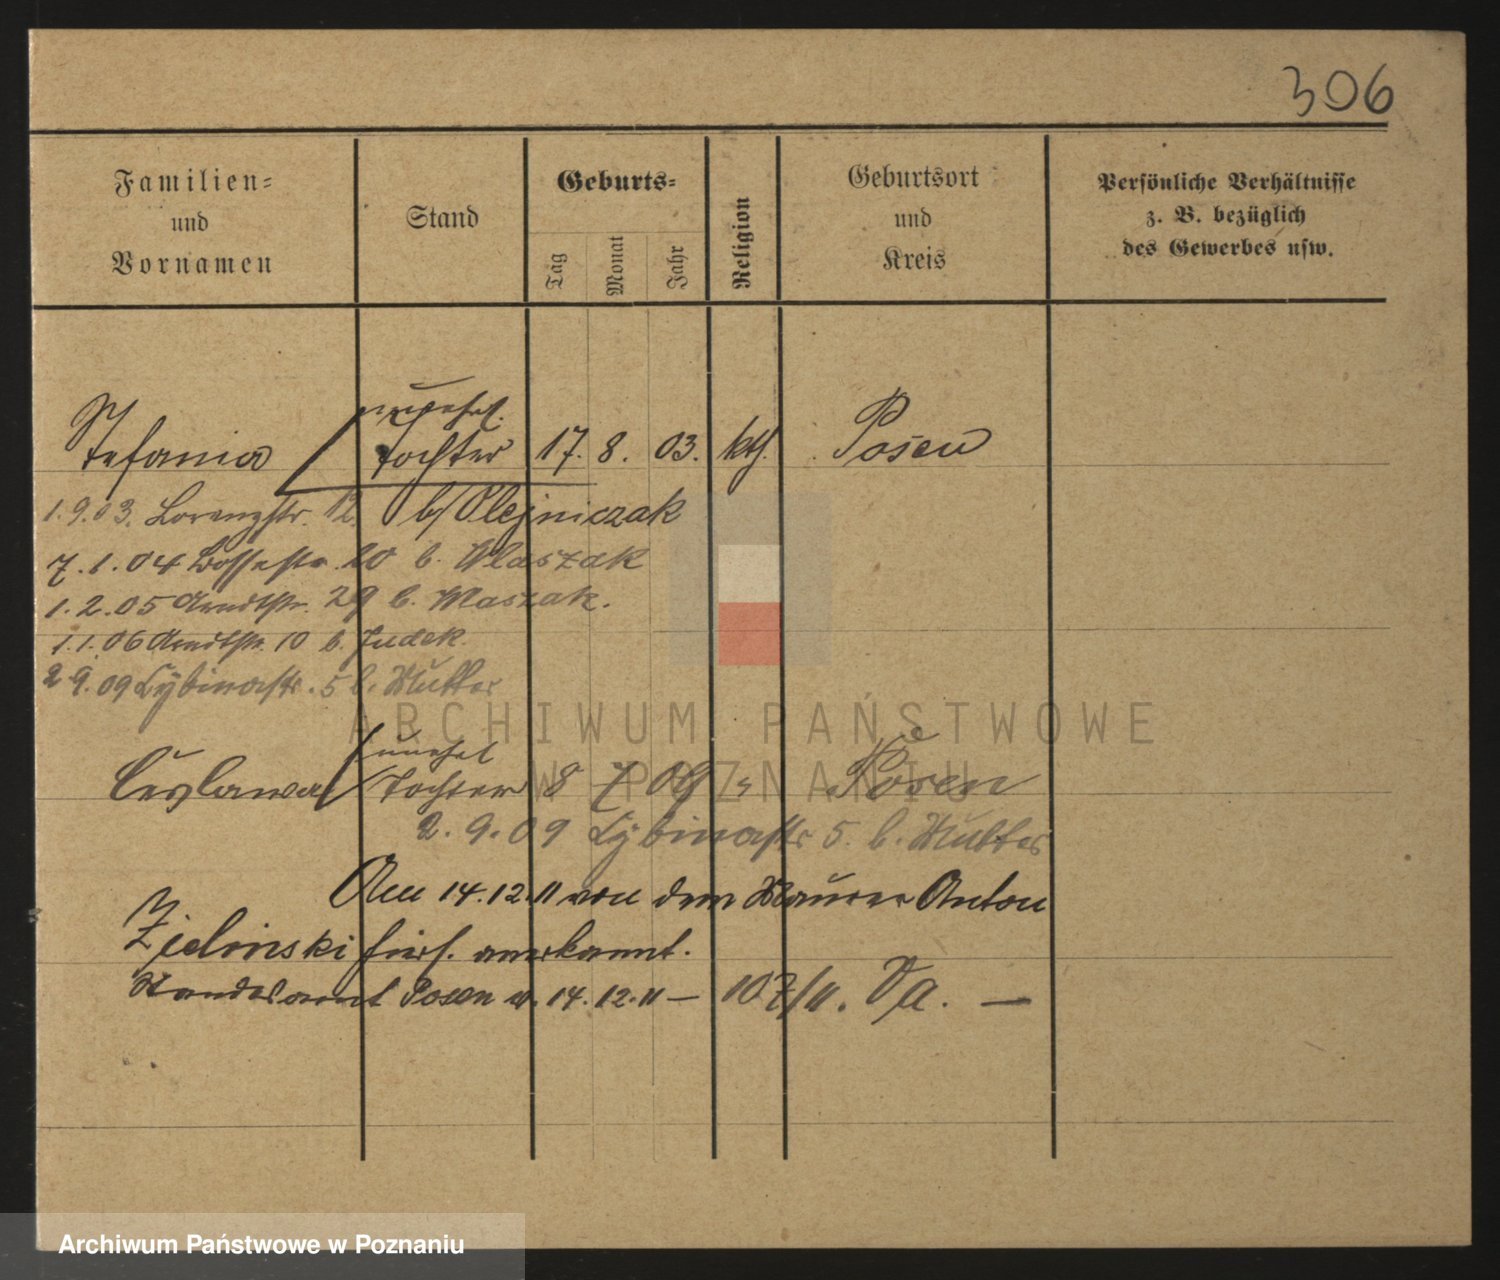 306
Familien=
und
Vornamen
Stand
Geburts=
Tag
Monat
Jahr
Religion
Geburtsort
und
Kreis
Persönliche Verhältnisse
z. B. bezüglich
des Gewerbes usw.
unehel.
Stefania Tochter 17. 8. 03. kth. Posen
1.9.03. Lorenzstr. 12. b/ Olejniczak
7.1.04 20 b. Maszak
1.2.05 Arndtstr. 29 b. Maszak.
1.1.06 Arndtstr. 10 b. Judek.
2.9.09 Cybinastr. 5 b. Mutter
unehel
Ceslawa Tochter 8 7 09 " Posen
2.9.09 Cybinastr 5. b. Mutter
Am 14.12.11 von dem Maurer Anton
Zielinski hiers. anerkannt.
Standesamt Posen v. 14.12.11 — 107/11. Va. —
ARCHIWUM PAŃSTWOWE
W POZNANIU
Archiwum Państwowe w Poznaniu